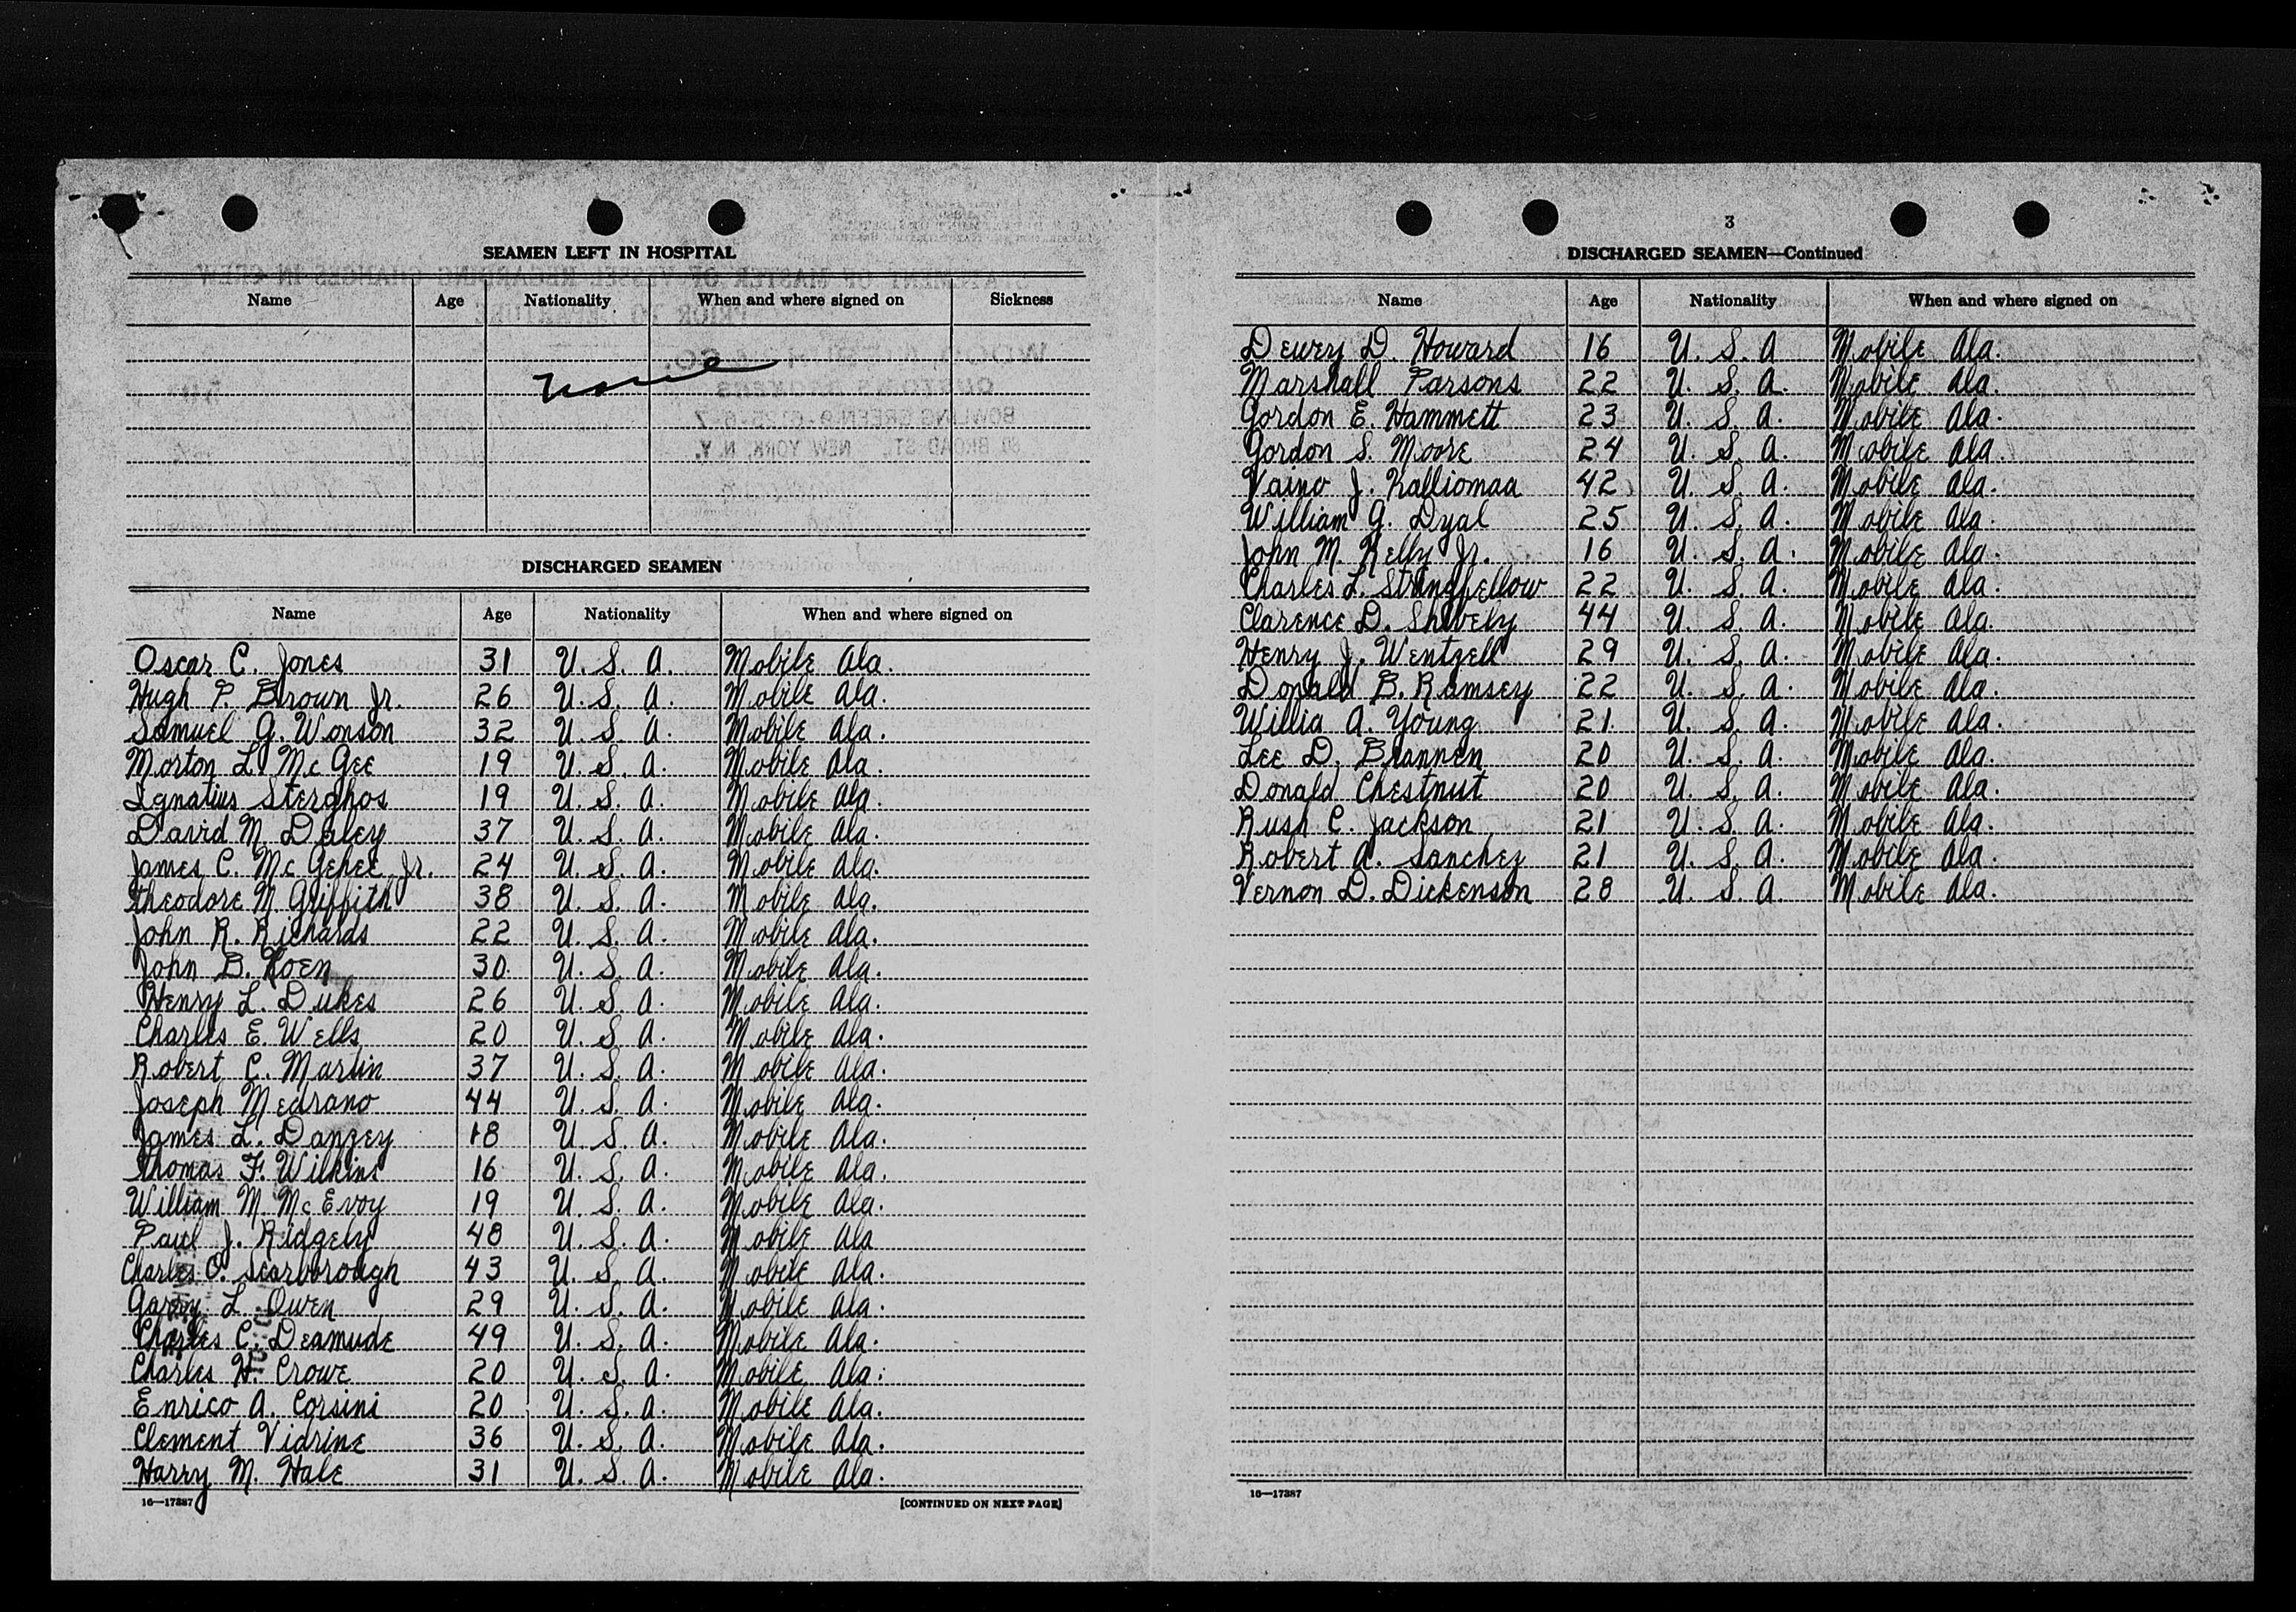 SEAMEN LEFT IN HOSPITAL
Name Age Nationality When and where signed on Sickness
None
DISCHARGED SEAMEN
Name Age Nationality When and where signed on
Oscar C. Jones 31 U. S. A. Mobile Ala.
Hugh P. Brown Jr. 26 U. S. A. Mobile Ala.
Samuel G. Wonson 32 U. S. A. Mobile Ala.
Morton L. McGee 19 U. S. A. Mobile Ala.
Ignatius Sterghos 19 U. S. A. Mobile Ala.
David M. Daley 37 U. S. A. Mobile Ala.
James C. McGehee Jr. 24 U. S. A. Mobile Ala.
Theodore M Griffith 38 U. S. A. Mobile Ala.
John R. Richards 22 U. S. A. Mobile Ala.
John B. Koen 30 U. S. A. Mobile Ala.
Henry L. Dukes 26 U. S. A. Mobile Ala.
Charles E. Wells 20 U. S. A. Mobile Ala.
Robert C. Martin 37 U. S. A. Mobile Ala.
Joseph Medrano 44 U. S. A. Mobile Ala.
James L. Danzey 18 U. S. A. Mobile Ala.
Thomas F. Wilkins 16 U. S. A. Mobile Ala.
William M. McEvoy 19 U. S. A. Mobile Ala.
Paul J. Ridgely 48 U. S. A. Mobile Ala
Charles O. Scarborough 43 U. S. A. Mobile Ala.
Garry L. Owen 29 U. S. A. Mobile Ala.
Charles C. Deamude 49 U. S. A. Mobile Ala.
Charles H. Crowe 20 U. S. A. Mobile Ala.
Enrico A. Corsini 20 U. S. A. Mobile Ala.
Clement Vidrine 36 U. S. A. Mobile Ala.
Harry M. Hale 31 U. S. A. Mobile Ala.
16—17387 [CONTINUED ON NEXT PAGE]
3
DISCHARGED SEAMEN—Continued
Name Age Nationality When and where signed on
Dewey D. Howard 16 U. S. A Mobile Ala.
Marshall Parsons 22 U. S. A. Mobile Ala.
Gordon E. Hammett 23 U. S. A. Mobile Ala.
Gordon S. Moore 24 U. S. A. Mobile Ala.
Vaino J. Kalliomaa 42 U. S. A. Mobile Ala.
William G. Dyal 25 U. S. A. Mobile Ala.
John M. Kelly Jr. 16 U. S. A. Mobile Ala.
Charles L. Stringfellow 22 U. S. A. Mobile Ala.
Clarence D. Shively 44 U. S. A. Mobile Ala.
Henry J. Wentzell 29 U. S. A. Mobile Ala.
Donald B. Ramsey 22 U. S. A. Mobile Ala.
Willia A. Young 21 U. S. A. Mobile Ala.
Lee D. Brannen 20 U. S. A. Mobile Ala.
Donald Chestnut 20 U. S. A. Mobile Ala.
Rush C. Jackson 21 U. S. A. Mobile Ala.
Robert A. Sanchez 21 U. S. A. Mobile Ala.
Vernon D. Dickenson 28 U. S. A. Mobile Ala.
16—17387